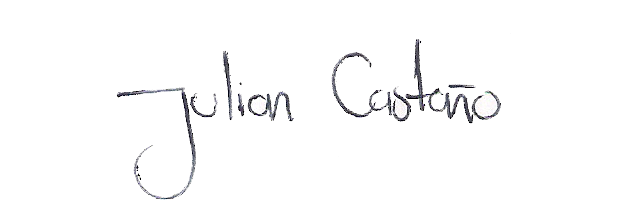 Julian Castaño